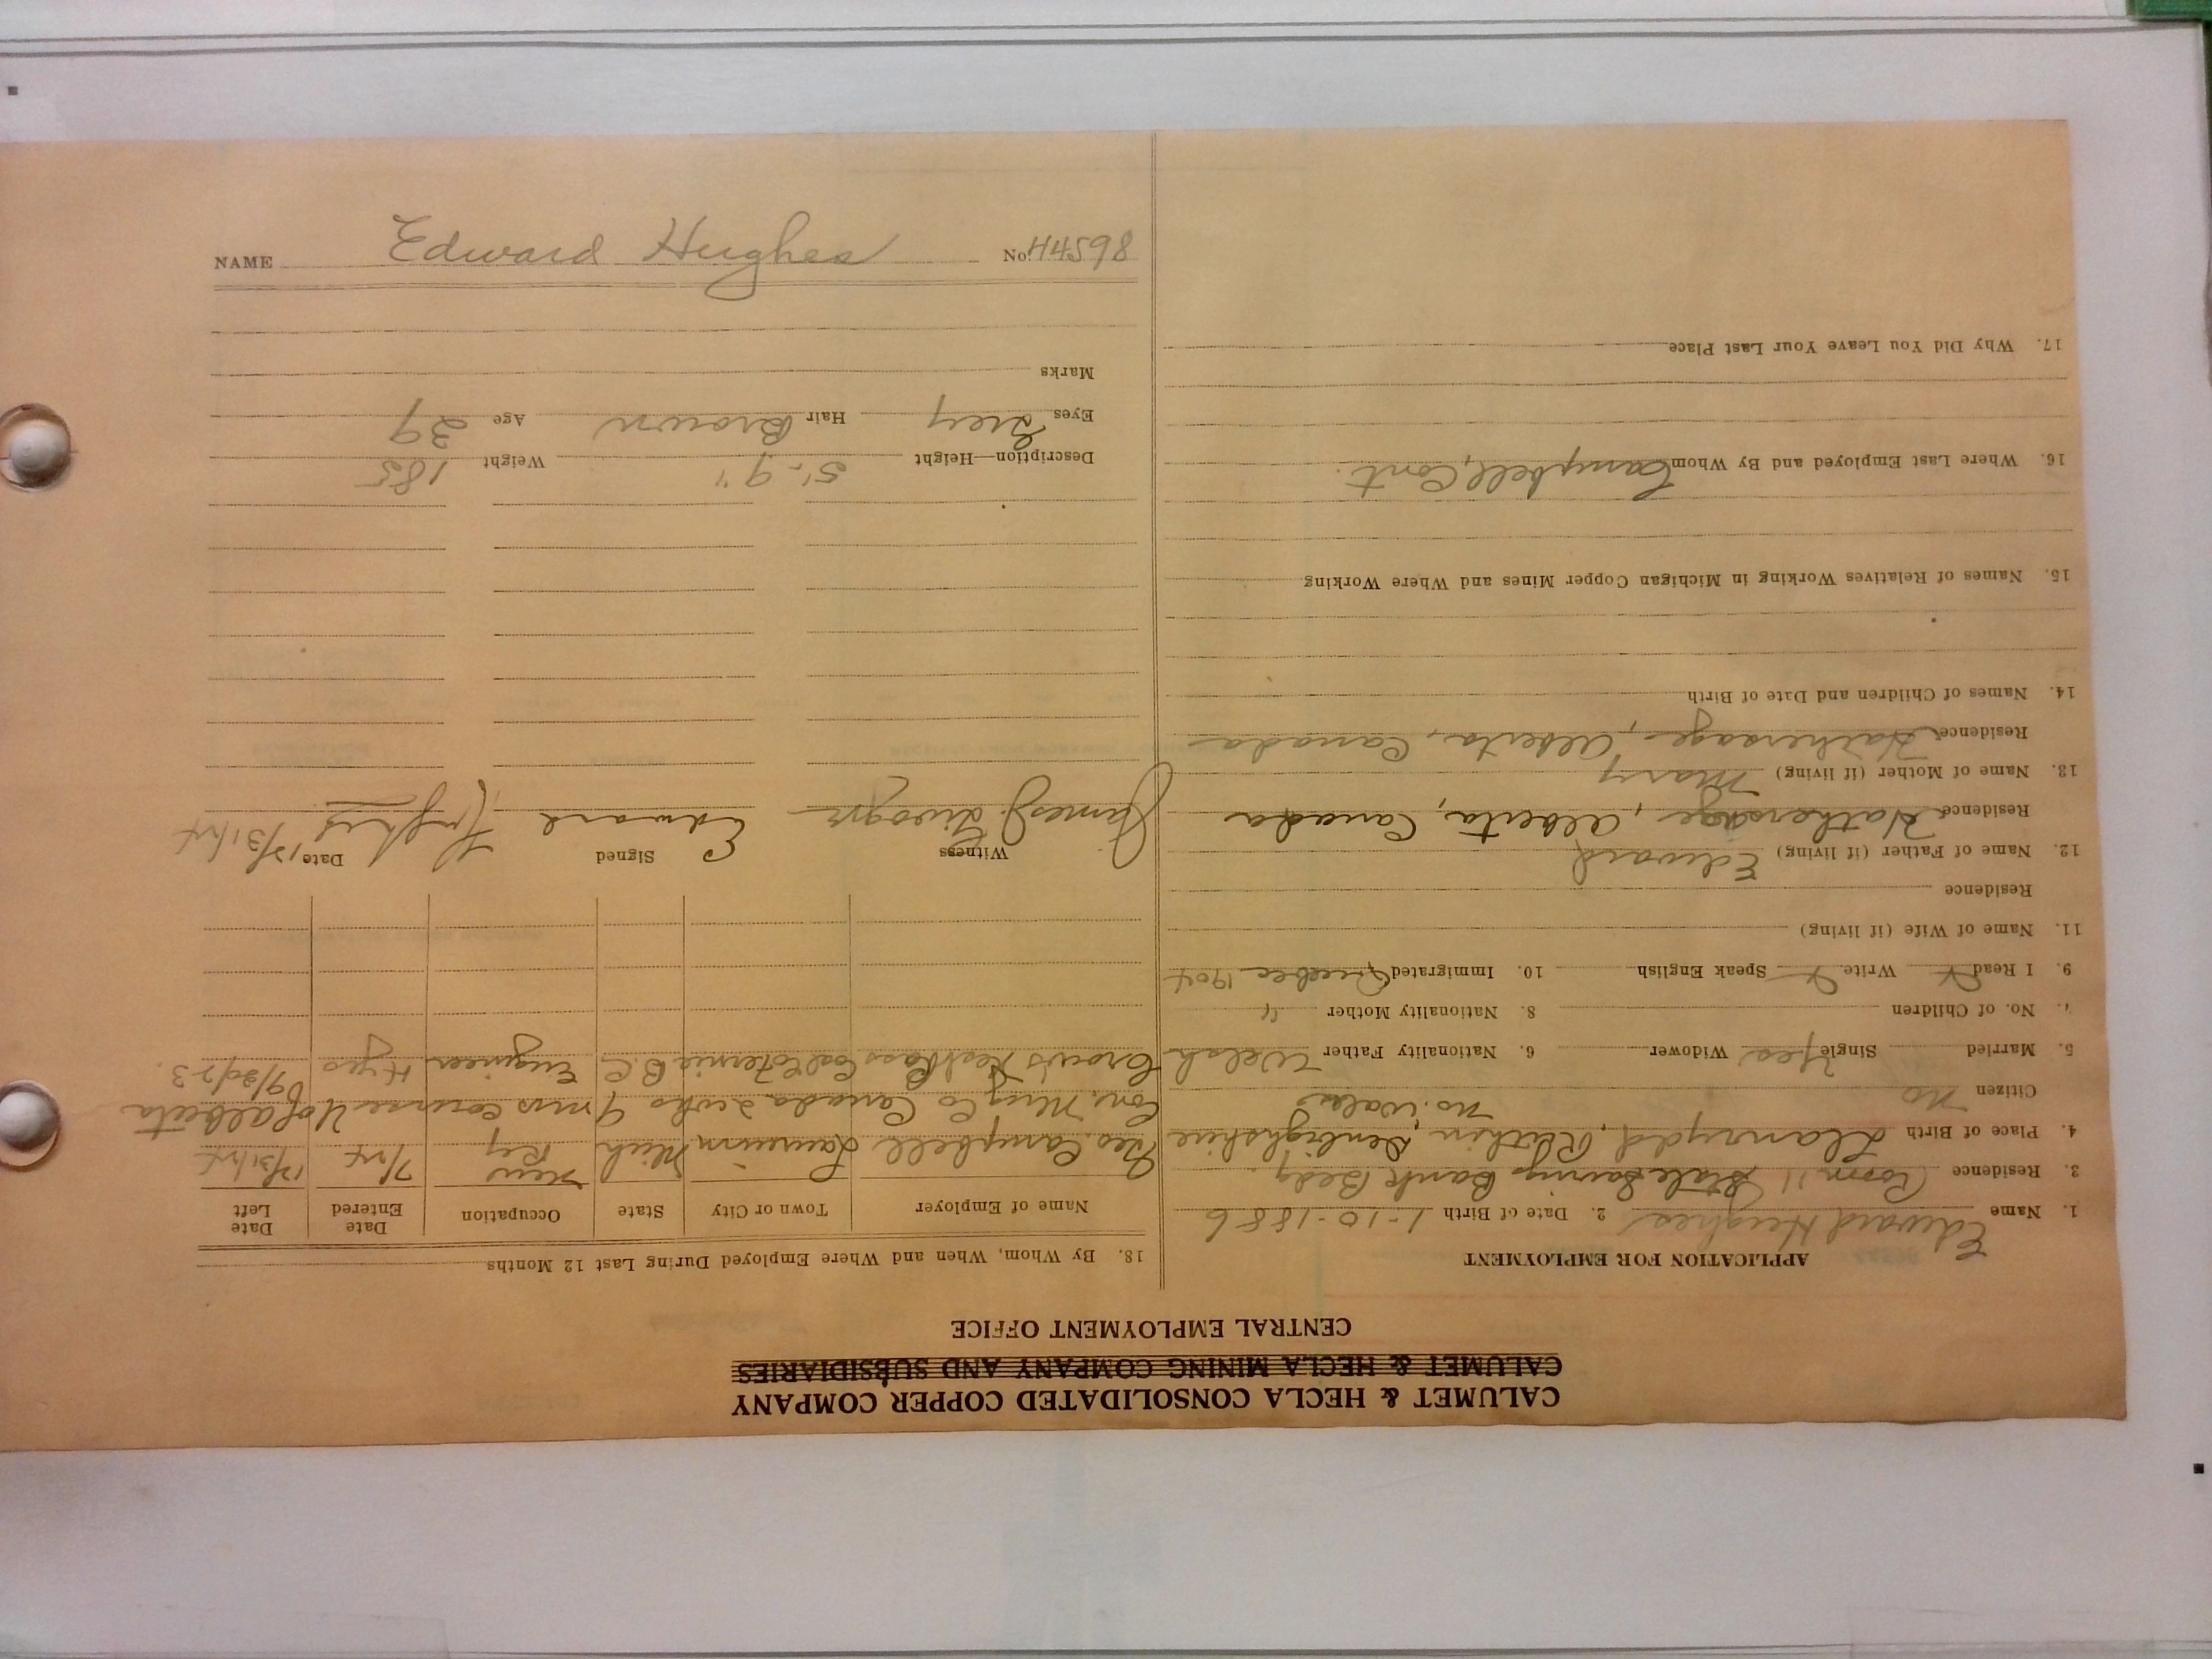 CALUMET & HECLA CONSOLIDATED COPPER COMPANY
CALUMET & HECLA MINING COMPANY AND SUBSIDIARIES
CENTRAL EMPLOYMENT OFFICE
APPLICATION FOR EMPLOYMENT
1. Name Edward Hughes 2. Date of Birth 1-10-1886
3. Residence Room 11 State Savings Bank Bldg.
4. Place of Birth Llanrydd, Ruthin, Denbighshire
No. Wales
Citizen No
5. Married Single Yes Widower 6. Nationality Father Welsh
7. No. of Children 8. Nationality Mother "
9. I Read Write Speak English 10. Immigrated Quebec 1904
11. Name of Wife (if living)
Residence
12. Name of Father (if living) Edward
Residence Hathersage, Alberta, Canada
13. Name of Mother (if living) Mary
Residence Hathersage, Alberta, Canada
14. Names of Children and Date of Birth
15. Names of Relatives Working in Michigan Copper Mines and Where Working
16. Where Last Employed and By Whom Campbell, Cont.
17. Why Did You Leave Your Last Place
18. By Whom, When and Where Employed During Last 12 Months
Name of Employer Town or City State Occupation Date Entered Date Left
Geo. Campbell Laurium Mich
Cons. Min'g Co Canada 9 mos course U of Alberta
Crow's Nest Pass Coal Co Fernie B.C. Engineer 4 yrs
Witness Signed Date
James J. Edward Hughes 12/31/24
Description—Height 5'-9" Weight 185
Eyes Grey Hair Brown Age 39
Marks
NAME Edward Hughes No. 44598